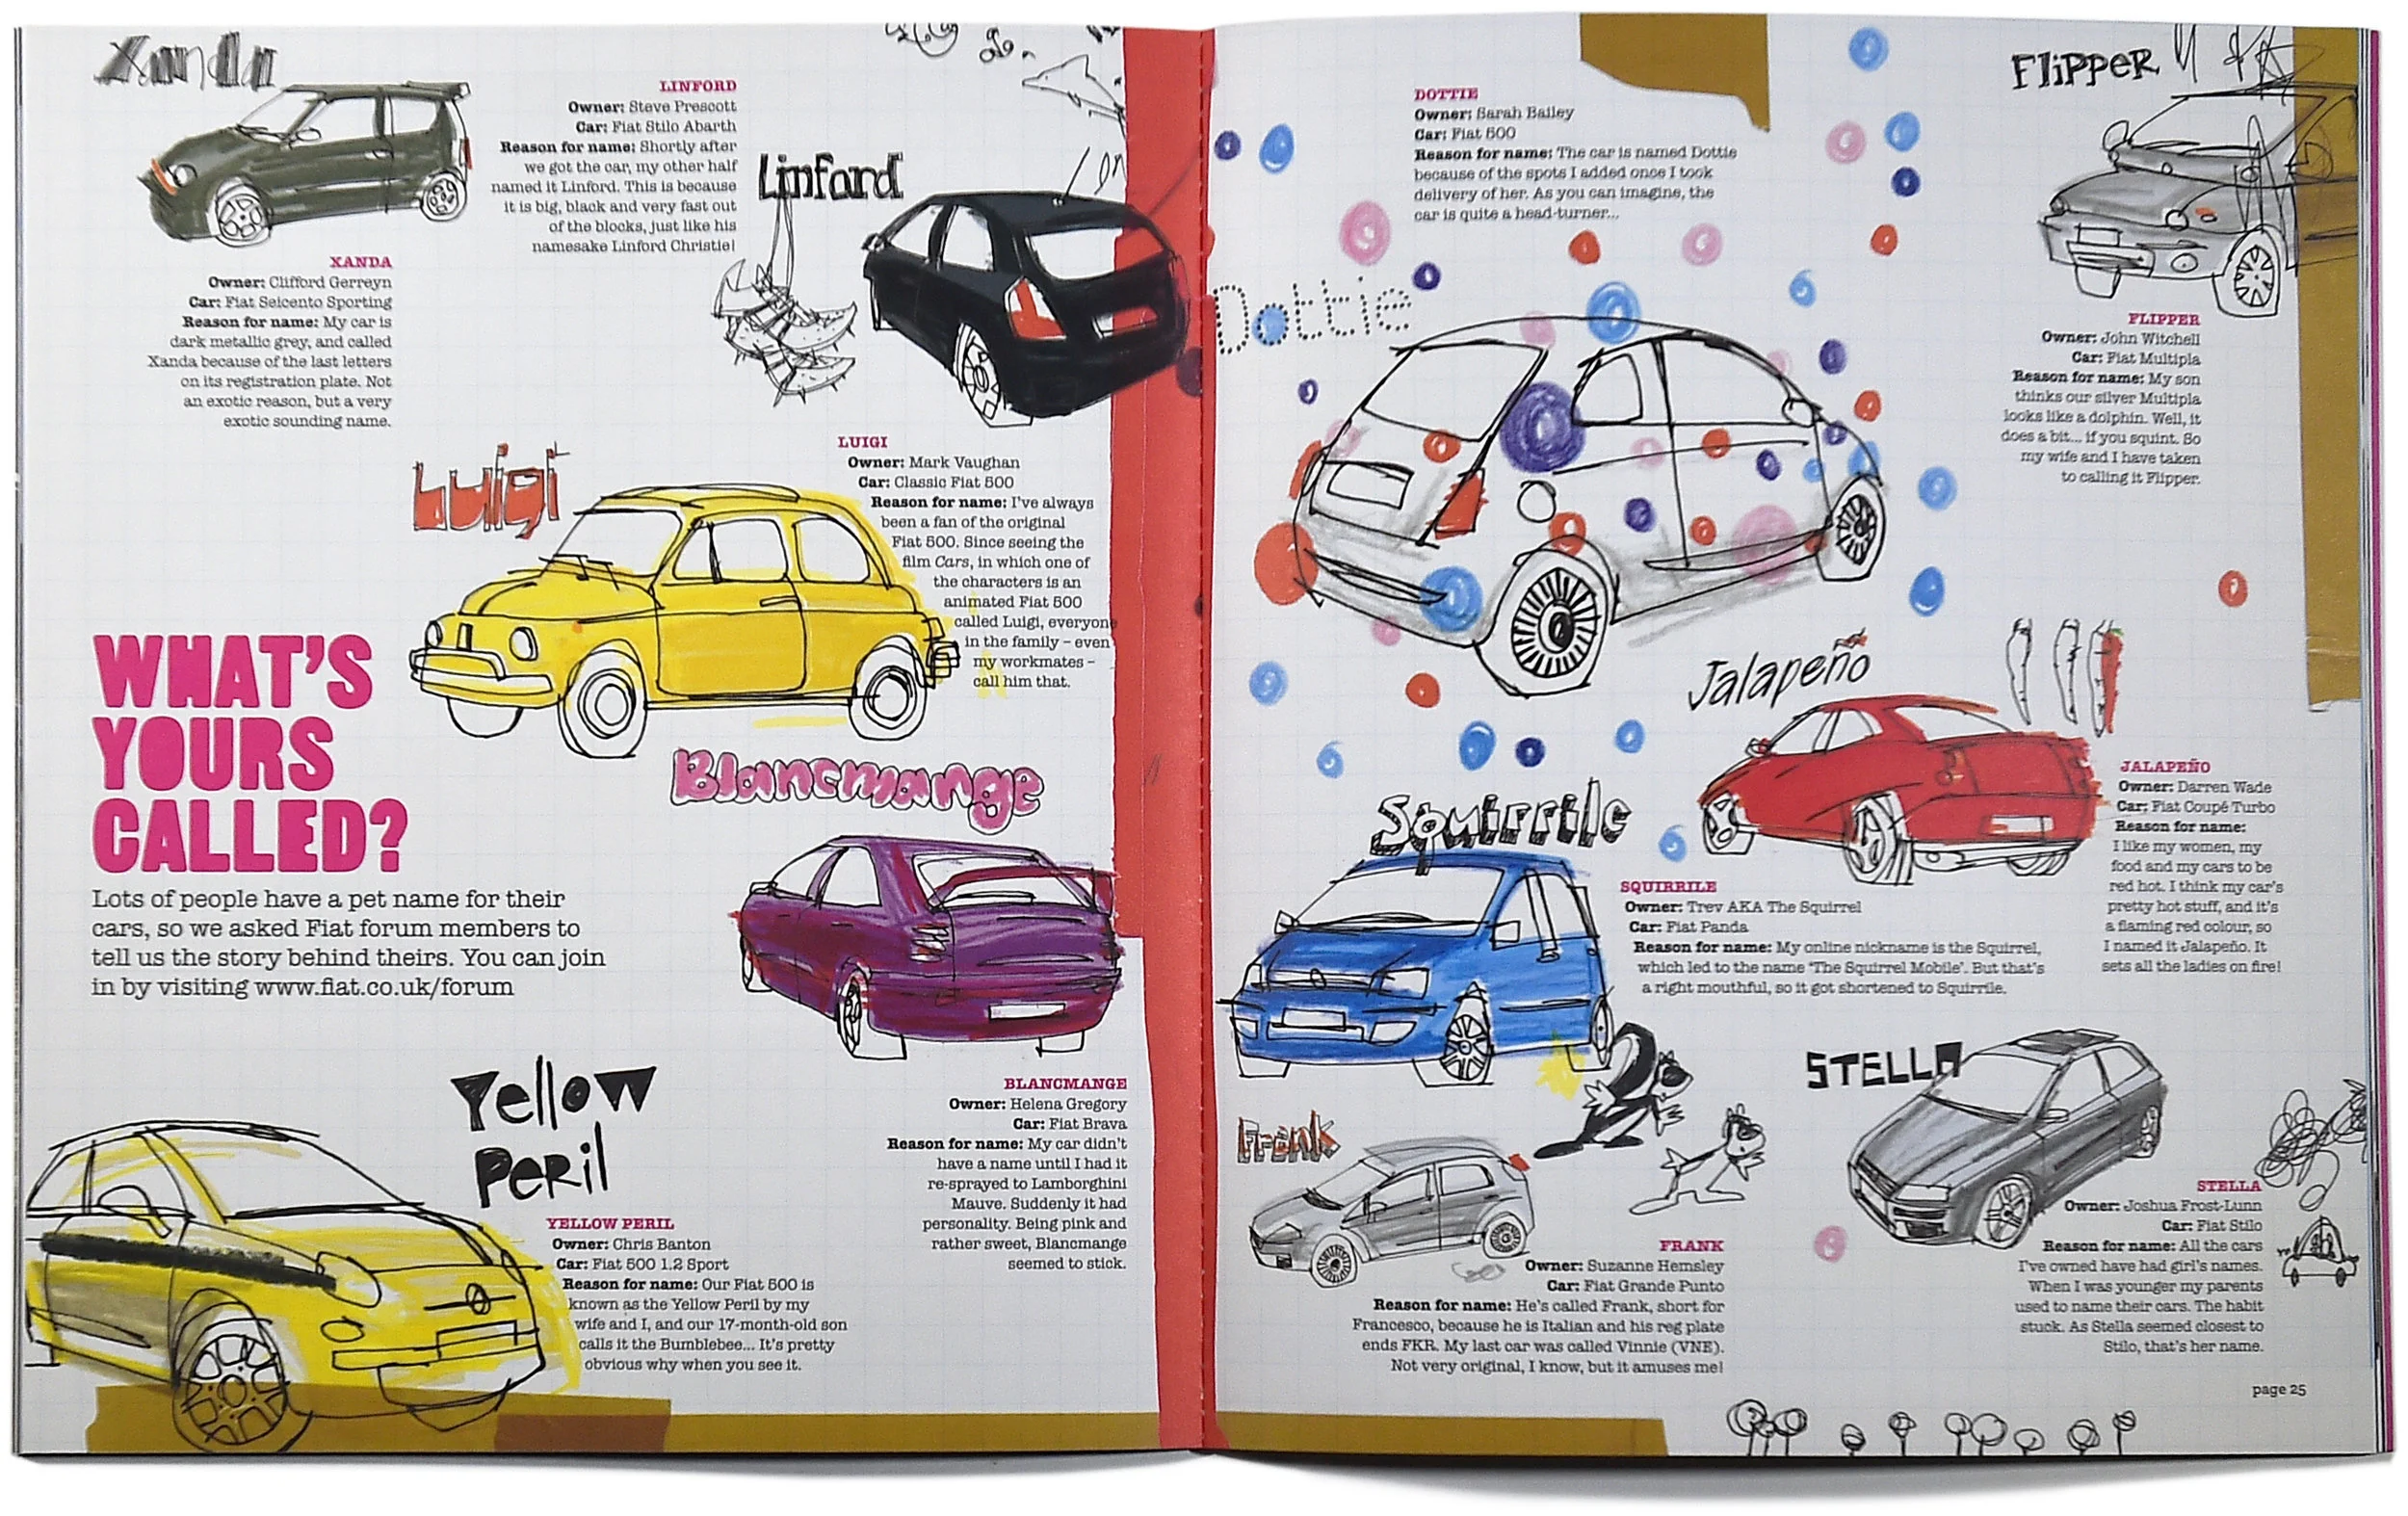 Xanda
XANDA
Owner: Clifford Gerreyn
Car: Fiat Seicento Sporting
Reason for name: My car is
dark metallic grey, and called
Xanda because of the last letters
on its registration plate. Not
an exotic reason, but a very
exotic sounding name.
LINFORD
Owner: Steve Prescott
Car: Fiat Stilo Abarth
Reason for name: Shortly after
we got the car, my other half
named it Linford. This is because
it is big, black and very fast out
of the blocks, just like his
namesake Linford Christie!
Linford
Luigi
LUIGI
Owner: Mark Vaughan
Car: Classic Fiat 500
Reason for name: I've always
been a fan of the original
Fiat 500. Since seeing the
film Cars, in which one of
the characters is an
animated Fiat 500
called Luigi, everyone
in the family – even
my workmates –
call him that.
WHAT'S
YOURS
CALLED?
Lots of people have a pet name for their
cars, so we asked Fiat forum members to
tell us the story behind theirs. You can join
in by visiting www.fiat.co.uk/forum
Blancmange
BLANCMANGE
Owner: Helena Gregory
Car: Fiat Brava
Reason for name: My car didn't
have a name until I had it
re-sprayed to Lamborghini
Mauve. Suddenly it had
personality. Being pink and
rather sweet, Blancmange
seemed to stick.
Yellow
Peril
YELLOW PERIL
Owner: Chris Banton
Car: Fiat 500 1.2 Sport
Reason for name: Our Fiat 500 is
known as the Yellow Peril by my
wife and I, and our 17-month-old son
calls it the Bumblebee... It's pretty
obvious why when you see it.
DOTTIE
Owner: Sarah Bailey
Car: Fiat 500
Reason for name: The car is named Dottie
because of the spots I added once I took
delivery of her. As you can imagine, the
car is quite a head-turner...
Dottie
Flipper
FLIPPER
Owner: John Witchell
Car: Fiat Multipla
Reason for name: My son
thinks our silver Multipla
looks like a dolphin. Well, it
does a bit... if you squint. So
my wife and I have taken
to calling it Flipper.
Jalapeño
JALAPEÑO
Owner: Darren Wade
Car: Fiat Coupé Turbo
Reason for name:
I like my women, my
food and my cars to be
red hot. I think my car's
pretty hot stuff, and it's
a flaming red colour, so
I named it Jalapeño. It
sets all the ladies on fire!
Squirrile
SQUIRRILE
Owner: Trev AKA The Squirrel
Car: Fiat Panda
Reason for name: My online nickname is the Squirrel,
which led to the name 'The Squirrel Mobile'. But that's
a right mouthful, so it got shortened to Squirrile.
Frank
FRANK
Owner: Suzanne Hemsley
Car: Fiat Grande Punto
Reason for name: He's called Frank, short for
Francesco, because he is Italian and his reg plate
ends FKR. My last car was called Vinnie (VNE).
Not very original, I know, but it amuses me!
STELLA
STELLA
Owner: Joshua Frost-Lunn
Car: Fiat Stilo
Reason for name: All the cars
I've owned have had girl's names.
When I was younger my parents
used to name their cars. The habit
stuck. As Stella seemed closest to
Stilo, that's her name.
page 25